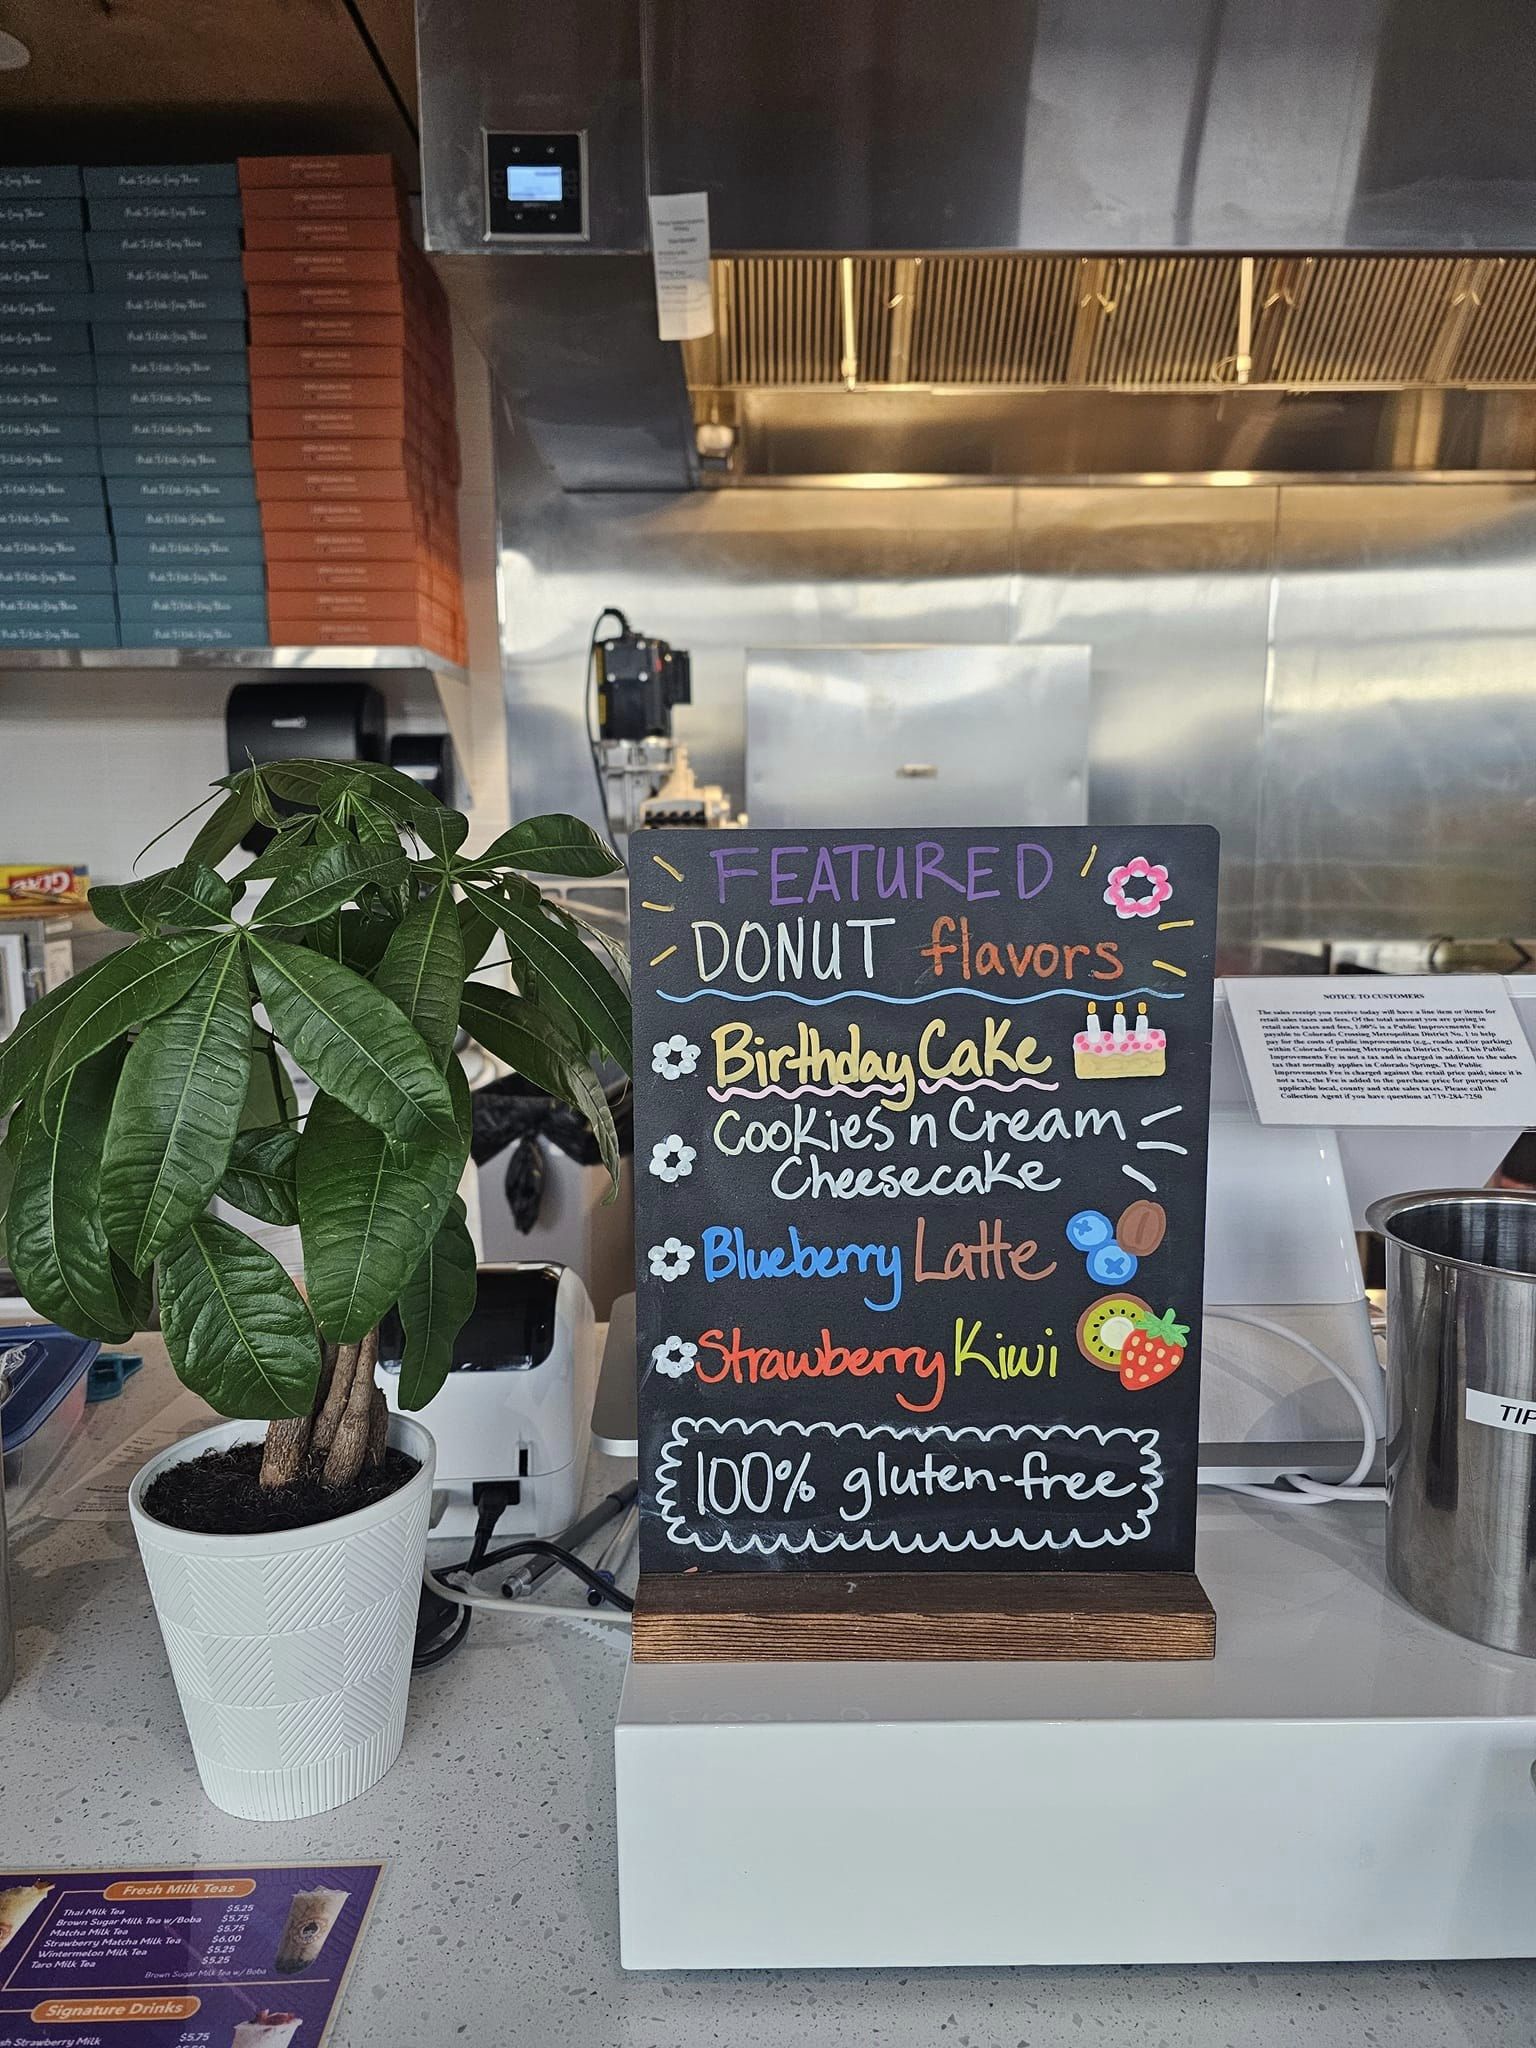 FEATURED
DONUT flavors
Birthday Cake
Cookies n Cream
Cheesecake
Blueberry Latte
Strawberry Kiwi
100% gluten-free
NOTICE TO CUSTOMERS
The sales receipt you receive today will have a line item or items for
retail sales taxes and fees. Of the total amount you are paying in
retail sales taxes and fees, 1.00% is a Public Improvements Fee
payable to Colorado Crossing Metropolitan District No. 1 to help
pay for the costs of public improvements (e.g., roads and/or parking)
within Colorado Crossing Metropolitan District No. 1. This Public
Improvements Fee is not a tax and is charged in addition to the sales
tax that normally applies in Colorado Springs. The Public
Improvements Fee is charged against the retail price paid; since it is
not a tax, the Fee is added to the purchase price for purposes of
applicable local, county and state sales taxes. Please call the
Collection Agent if you have questions at 719-284-7250
GLAD
Fresh Milk Teas
Thai Milk Tea $5.25
Brown Sugar Milk Tea w/Boba $5.75
Matcha Milk Tea $5.75
Strawberry Matcha Milk Tea $6.00
Wintermelon Milk Tea $5.25
Taro Milk Tea $5.25
Brown Sugar Milk Tea w/ Boba
Signature Drinks
Strawberry Milk $5.75